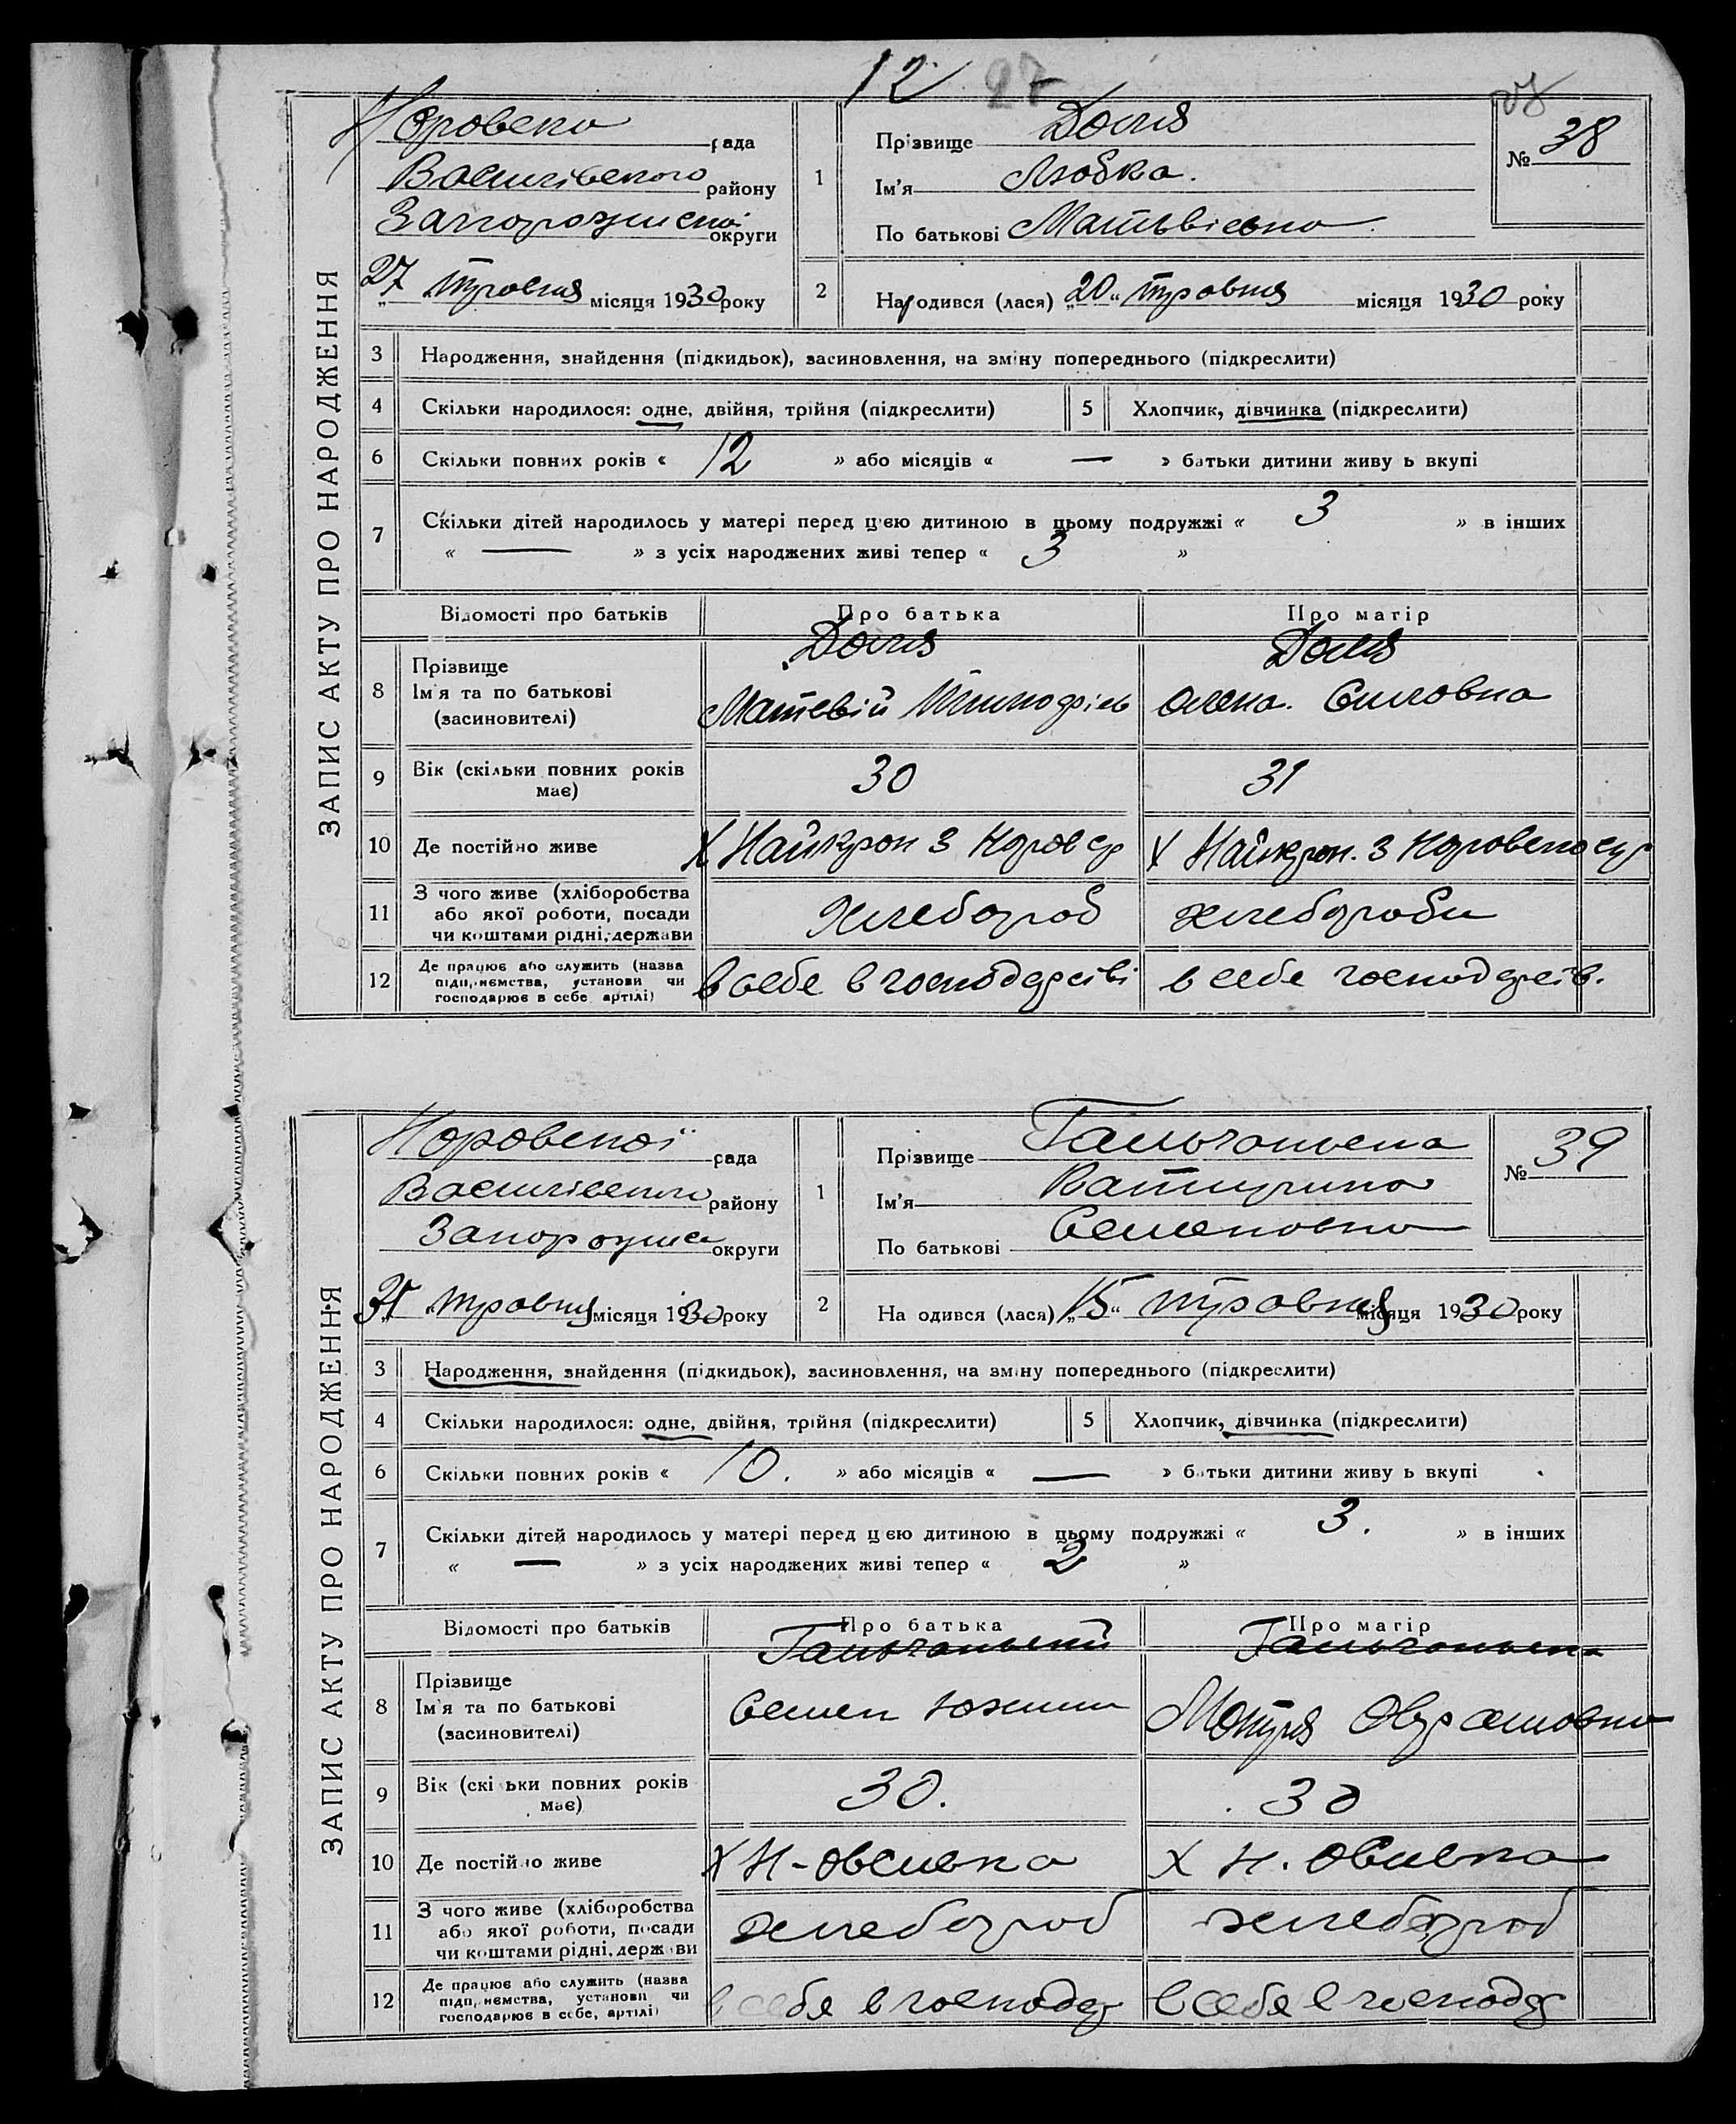 12 27
ЗАПИС АКТУ ПРО НАРОДЖЕННЯ
рада
Василівського району
Запорожиської округи
27 травня місяця 1930 року
1
Прізвище Доля
Ім'я Любка.
По батькові Матьвієвна
№ 38
2
Народився (лася) „20“ травня місяця 1930 року
3 Народження, знайдення (підкидьок), засиновлення, на зміну попереднього (підкреслити)
4 Скільки народилося: одне, двійня, трійня (підкреслити)
5 Хлопчик, дівчинка (підкреслити)
6 Скільки повних років « 12 » або місяців « — » батьки дитини живу ь вкупі
7 Скільки дітей народилось у матері перед цією дитиною в цьому подружжі « 3 » в інших
« — » з усіх народжених живі тепер « 3 »
Відомості про батьків Про батька Про матір
8 Прізвище
Ім'я та по батькові
(засновителі)
Доля
Матевій
Доля
Олена. Силовна
9 Вік (скільки повних років
має)
30 31
10 Де постійно живе
11 З чого живе (хліборобства
або якої роботи, посади
чи коштами рідні, держави
Хлебороб хлебороби
12 Де працює або служить (назва
підприємства, установи чи
господарює в себе артілі)
в себе в господарстві в себе господарств.
ЗАПИС АКТУ ПРО НАРОДЖЕННЯ
рада
Василівського району
округи
31 травня місяця 1930 року
1
Прізвище
Ім'я Катирина
По батькові Семеновна
№ 39
2
На одився (лася) „15“ травня місяця 1930 року
3 Народження, знайдення (підкидьок), засиновлення, на зміну попереднього (підкреслити)
4 Скільки народилося: одне, двійня, трійня (підкреслити)
5 Хлопчик, дівчинка (підкреслити)
6 Скільки повних років « 10. » або місяців « — » батьки дитини живу ь вкупі
7 Скільки дітей народилось у матері перед цією дитиною в цьому подружжі « 3. » в інших
« — » з усіх народжених живі тепер « 2 »
Відомості про батьків Про батька Про матір
8 Прізвище
Ім'я та по батькові
(засиновителі)
Семен
Мотря
9 Вік (скі ьки повних років
має)
30. 30
10 Де постійно живе
Х Н-Овсивка Х Н. Овсивка
11 З чого живе (хліборобства
або якої роботи, посади
чи коштами рідні, держави
хлебороб хлебороб
12 Де працює або служить (назва
підприємства, установи чи
господарює в себе, артілі)
в себя в господар в себя в господар